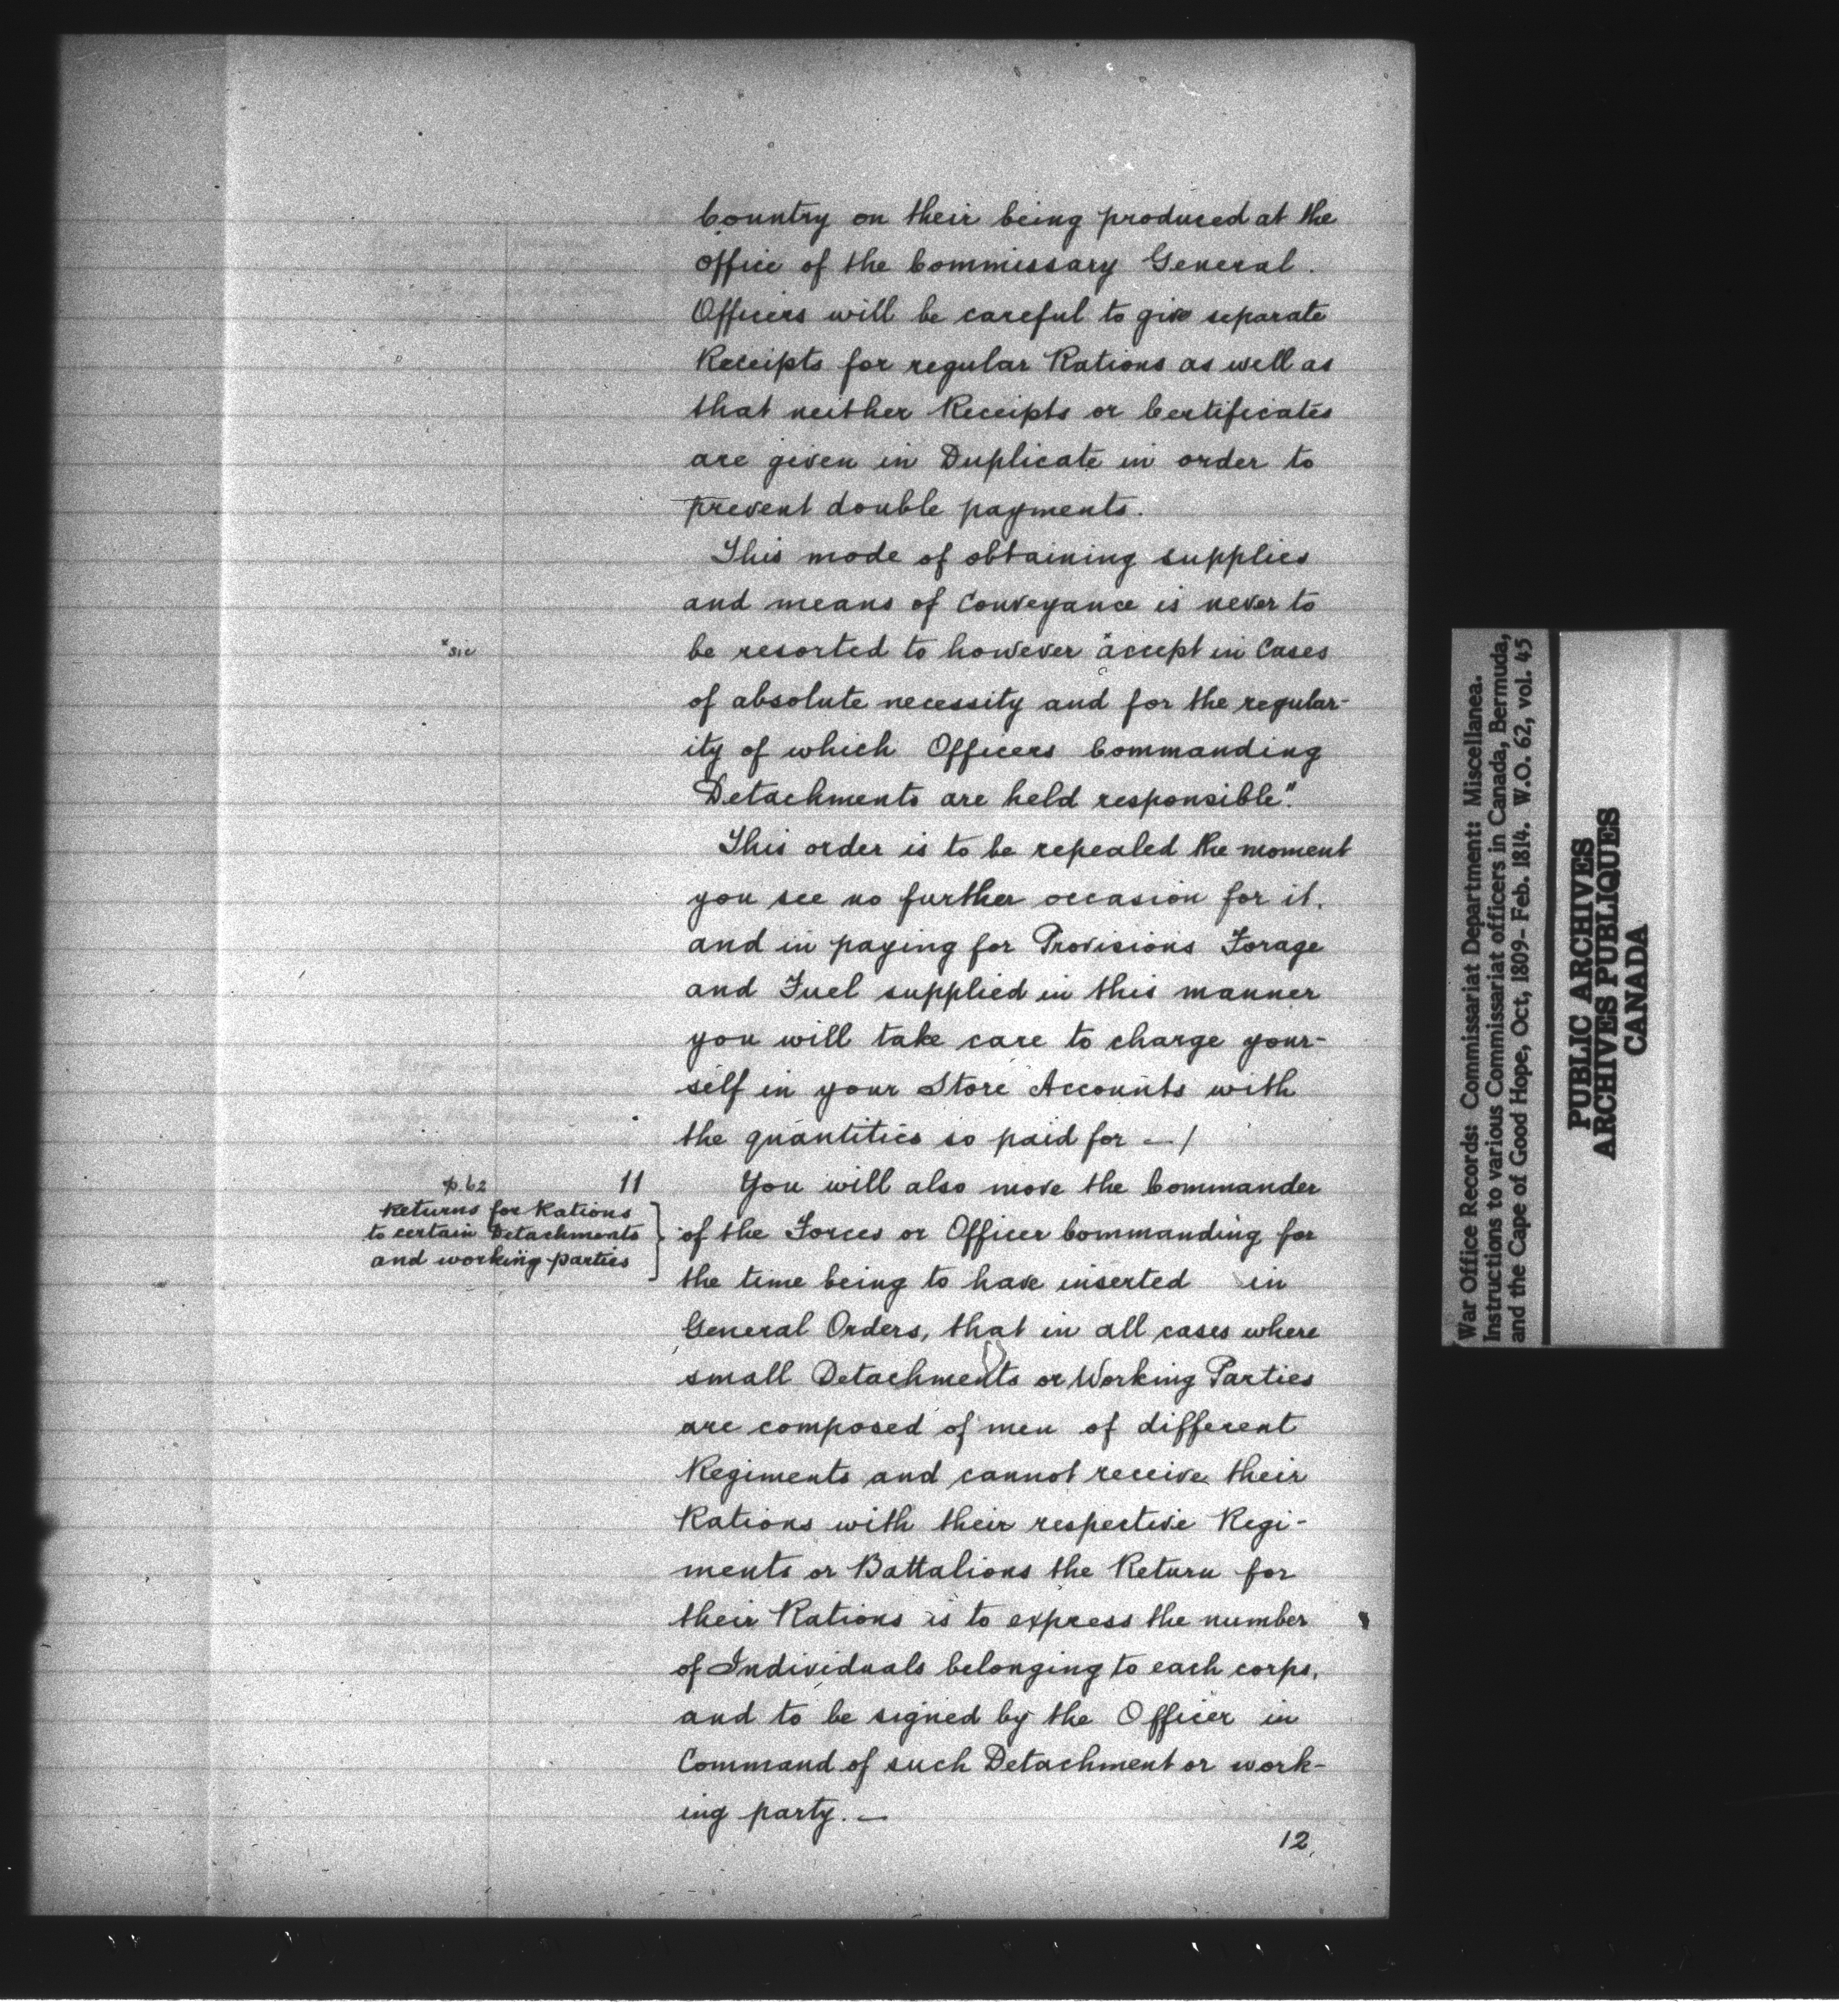 Country on their being produced at the
Office of the Commissary General.
Officers will be careful to give separate
Receipts for regular Rations as well as
that neither Receipts or Certificates
are given in Duplicate in order to
prevent double payments.
This mode of obtaining supplies
and means of Conveyance is never to
*sic
be resorted to however *accept in Cases
of absolute necessity and for the regular-
ity of which Officers Commanding
Detachments are held responsible".
This order is to be repealed the moment
you see no further occasion for it.
and in paying for Provisions Forage
and Fuel supplied in this manner
you will take care to charge your-
self in your Store Accounts with
the quantities so paid for — /
p. 62
Returns for Rations
to certain Detachments
and working parties
11 You will also move the Commander
of the Forces or Officer Commanding for
the time being to have inserted in
General Orders, that in all cases where
small Detachments or Working Parties
are composed of men of different
Regiments and cannot receive their
Rations with their respective Regi-
ments or Battalions the Return for
their Rations is to express the number
of Individuals belonging to each corps,
and to be signed by the Officer in
Command of such Detachment or work-
ing party. —
12
War Office Records: Commissariat Department: Miscellanea.
Instructions to various Commissariat officers in Canada, Bermuda,
and the Cape of Good Hope, Oct, 1809- Feb. 1814. W.O. 62, vol. 45
PUBLIC ARCHIVES
ARCHIVES PUBLIQUES
CANADA